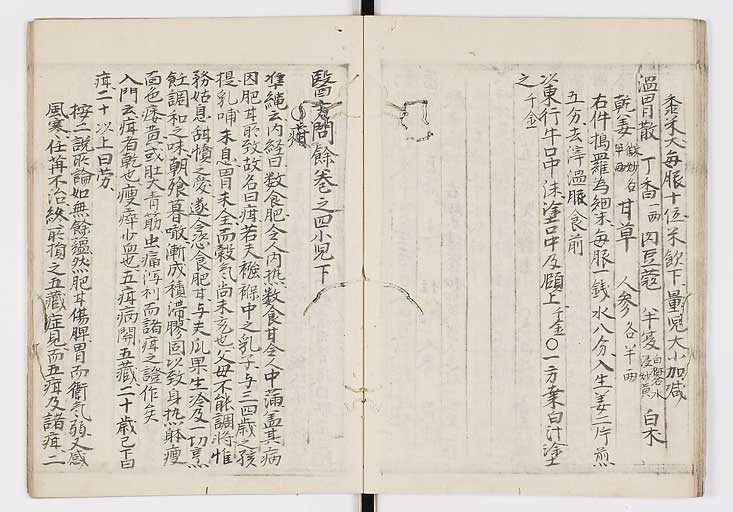 黍米大每服十位米飲下量児大小加减
温胃散 丁香一兩 肉豆蔻 半夏白礬水浸炒黃 白朮
乾姜 甘草 人參各半兩
右件搗羅為細末每服一銭水八分入生姜二片煎
五分去滓温服食前
以東行牛口中沫塗口中及頤上千金○一方桑白汁塗
之千金
醫方問餘卷之四小児下
疳
準繩云内経曰数食肥令人内热数食甘令人中滿盖其病
因肥甘所致故名曰疳若夫襁褓中之乳子与三四歳之孩
提乳哺未息胃未全而穀氣尚未充也父母不能調将惟
務姑息舐犢之愛遂令恣食肥甘与夫瓜果生冷及一切烹
飪調和之味朝飡暮啜漸成積滞膠固以致身热躰瘦
面色痿黃或肚大青筋虫痛瀉利而諸疳之證作矣
入門云疳者乾也瘦瘁少血也五疳病関五藏二十歳已下曰
疳二十以上曰労
按二説所論如無餘蘊然肥甘傷脾胃而衛氣弱又感
風寒住苒不治終所損之五藏症見而五疳及諸疳二